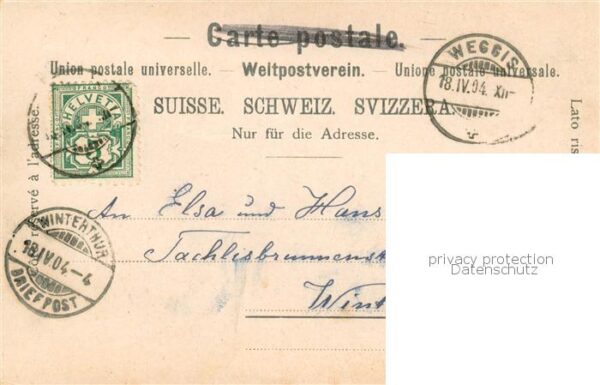 Carte postale.
Union postale universelle. — Weltpostverein. — Unione postale universale.
SUISSE. SCHWEIZ. SVIZZERA.
Nur für die Adresse.
WEGGIS
18.IV.04. XII-
FRANCO
HELVETIA
réservé à l'adresse.
Lato ris
An Elsa und Hans
Tachlisbrunnenst
Wint
WINTERTHUR
18 IV 04-4
BRIEFPOST
privacy protection
Datenschutz